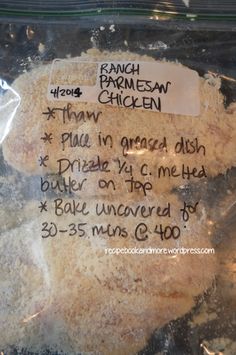 RANCH
PARMESAN
4/2014 CHICKEN
* Thaw
* Place in greased dish
* Drizzle 1/4 c. melted
butter on top
* Bake uncovered for
30-35 mins @ 400°
recipebookandmore.wordpress.com